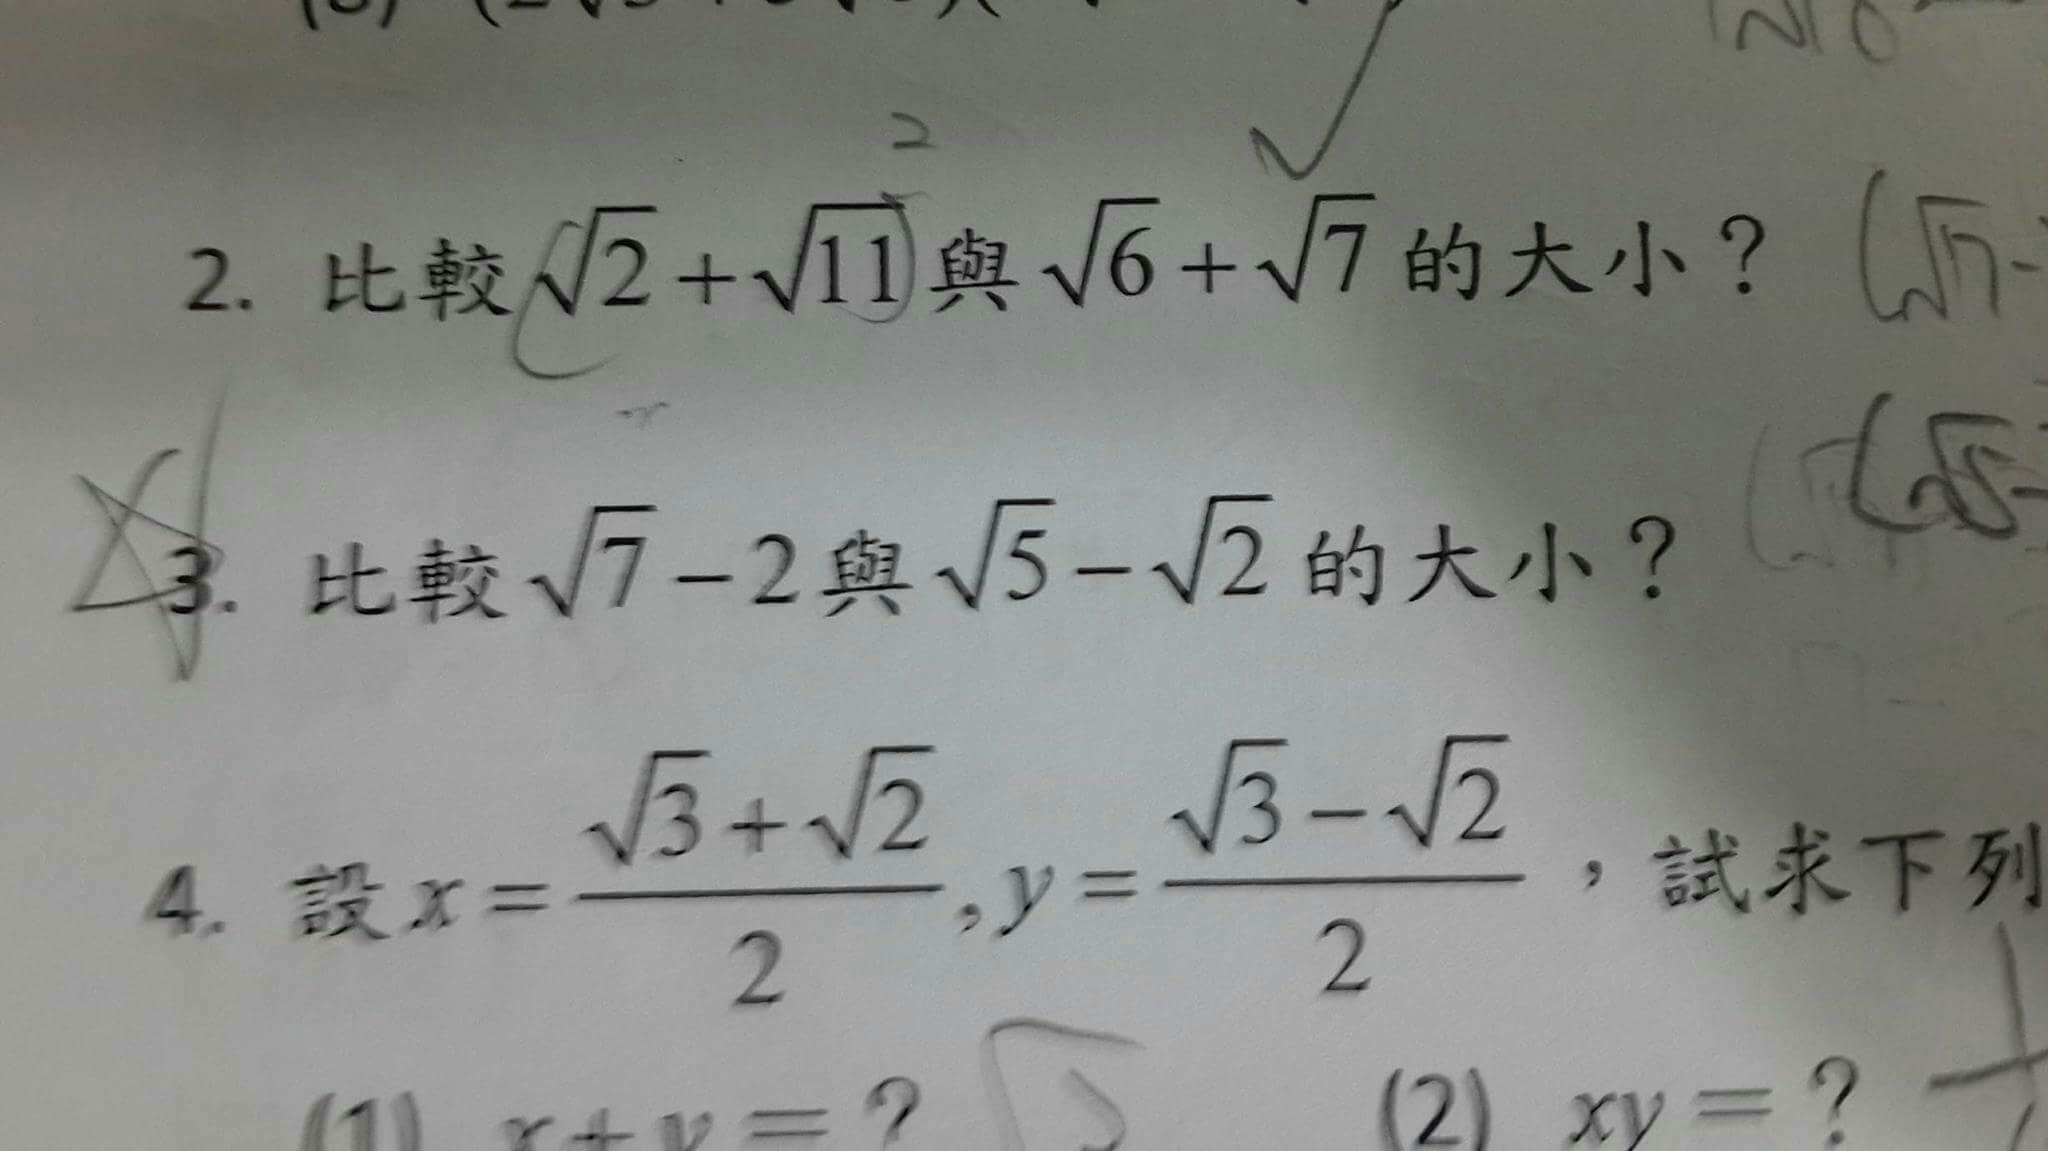 2
2. 比較 √2 + √11 與 √6 + √7 的大小？ (√7 -
3. 比較 √7 − 2 與 √5 − √2 的大小？ (√5 -
4. 設 x = (√3 + √2)/2 , y = (√3 − √2)/2 ，試求下列
(1) x + y = ？ (2) xy = ？